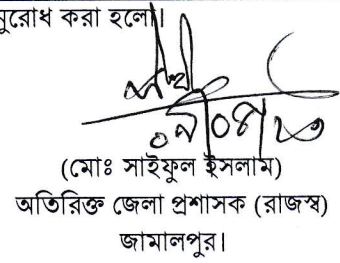 নুরোধ করা হলো।
(মোঃ সাইফুল ইসলাম)
অতিরিক্ত জেলা প্রশাসক (রাজস্ব)
জামালপুর।